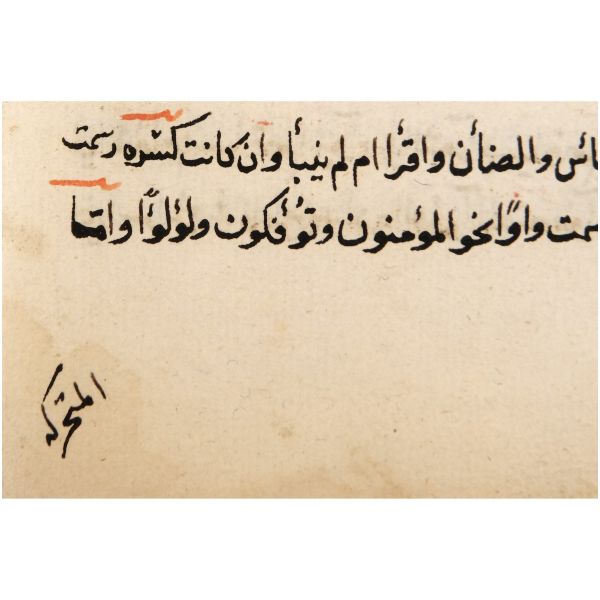 والضأن واقرأ ام لم ينبأ وان كانت كسره رسمت
سمت واوًا نحو المؤمنون وتؤفكون ولؤلؤًا واما
المتحركة